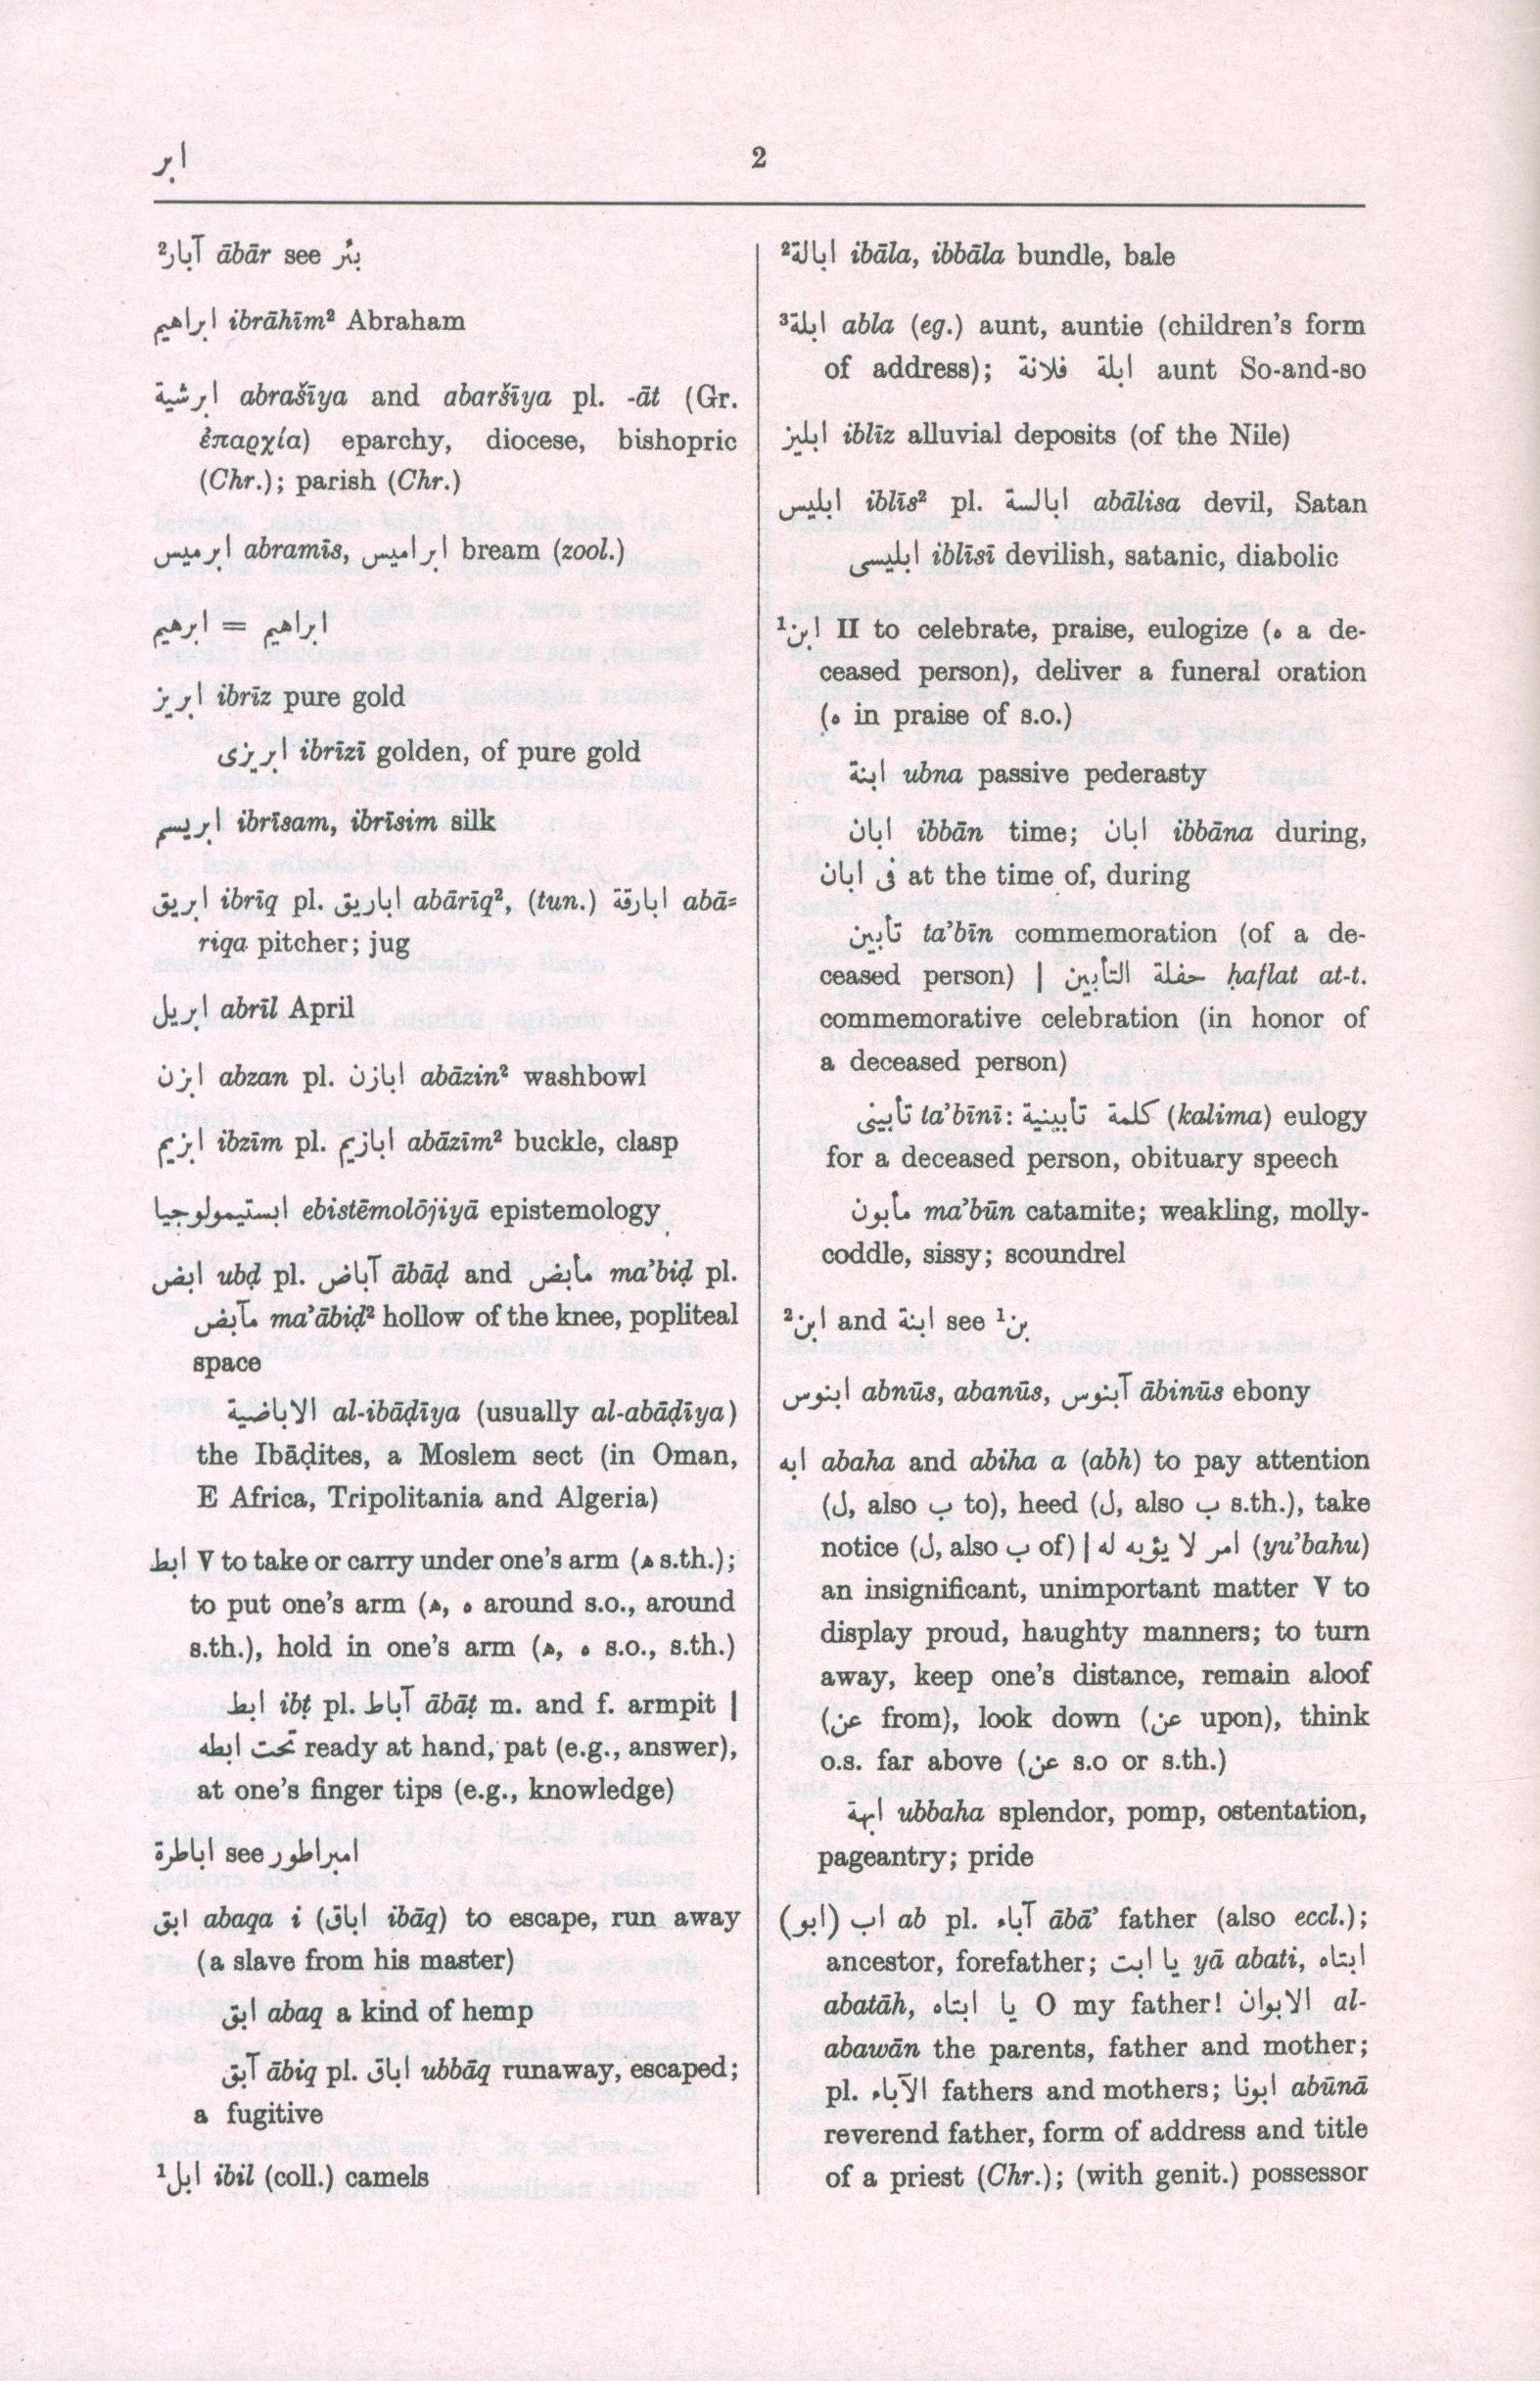 ابر
2
آبار² ābār see بئر
ابراهيم ibrāhīm² Abraham
ابرشية abrašīya and abaršīya pl. -āt (Gr.
ἐπαρχία) eparchy, diocese, bishopric
(Chr.); parish (Chr.)
ابرميس abramīs, ابراميس bream (zool.)
ابرهيم = ابراهيم
ابريز ibrīz pure gold
ابريزى ibrīzī golden, of pure gold
ابريسم ibrīsam, ibrīsim silk
ابريق ibrīq pl. اباريق abārīq², (tun.) ابارقة abā=
riqa pitcher; jug
ابريل abrīl April
ابزن abzan pl. ابازن abāzin² washbowl
ابزيم ibzīm pl. ابازيم abāzīm² buckle, clasp
ابستيمولوجيا ebistēmolōjiyā epistemology
ابض ubḍ pl. آباض ābāḍ and مأبض ma’biḍ pl.
مآبض ma’ābiḍ² hollow of the knee, popliteal
space
الاباضية al-ibāḍīya (usually al-abāḍīya)
the Ibāḍites, a Moslem sect (in Oman,
E Africa, Tripolitania and Algeria)
ابط V to take or carry under one’s arm (ﻫ s.th.);
to put one’s arm (ﻫ, ه around s.o., around
s.th.), hold in one’s arm (ﻫ, ه s.o., s.th.)
ابط ibṭ pl. آباط ābāṭ m. and f. armpit |
تحت ابطه ready at hand, pat (e.g., answer),
at one’s finger tips (e.g., knowledge)
اباطرة see امبراطور
ابق abaqa i (اباق ibāq) to escape, run away
(a slave from his master)
ابق abaq a kind of hemp
آبق ābiq pl. اباق ubbāq runaway, escaped;
a fugitive
ابل¹ ibil (coll.) camels
ابالة² ibāla, ibbāla bundle, bale
ابلة³ abla (eg.) aunt, auntie (children’s form
of address); ابلة فلانة aunt So-and-so
ابليز iblīz alluvial deposits (of the Nile)
ابليس iblīs² pl. ابالسة abālisa devil, Satan
ابليسى iblīsī devilish, satanic, diabolic
ابن¹ II to celebrate, praise, eulogize (ه a de-
ceased person), deliver a funeral oration
(ه in praise of s.o.)
ابنة ubna passive pederasty
ابان ibbān time; ابان ibbāna during,
فى ابان at the time of, during
تأبين ta’bīn commemoration (of a de-
ceased person) | حفلة التأبين ḥaflat at-t.
commemorative celebration (in honor of
a deceased person)
تأبينى ta’bīnī: كلمة تأبينية (kalima) eulogy
for a deceased person, obituary speech
مأبون ma’būn catamite; weakling, molly-
coddle, sissy; scoundrel
ابن² and ابنة see بن¹
ابنوس abnūs, abanūs, آبنوس ābinūs ebony
ابه abaha and abiha a (abh) to pay attention
(ل, also ب to), heed (ل, also ب s.th.), take
notice (ل, also ب of) | امر لا يؤبه له (yu’bahu)
an insignificant, unimportant matter V to
display proud, haughty manners; to turn
away, keep one’s distance, remain aloof
(عن from), look down (عن upon), think
o.s. far above (عن s.o or s.th.)
ابهة ubbaha splendor, pomp, ostentation,
pageantry; pride
(ابو) اب ab pl. آباء ābā’ father (also eccl.);
ancestor, forefather; يا ابت yā abati, ابتاه
abatāh, يا ابتاه O my father! الابوان al-
abawān the parents, father and mother;
pl. الآباء fathers and mothers; ابونا abūnā
reverend father, form of address and title
of a priest (Chr.); (with genit.) possessor